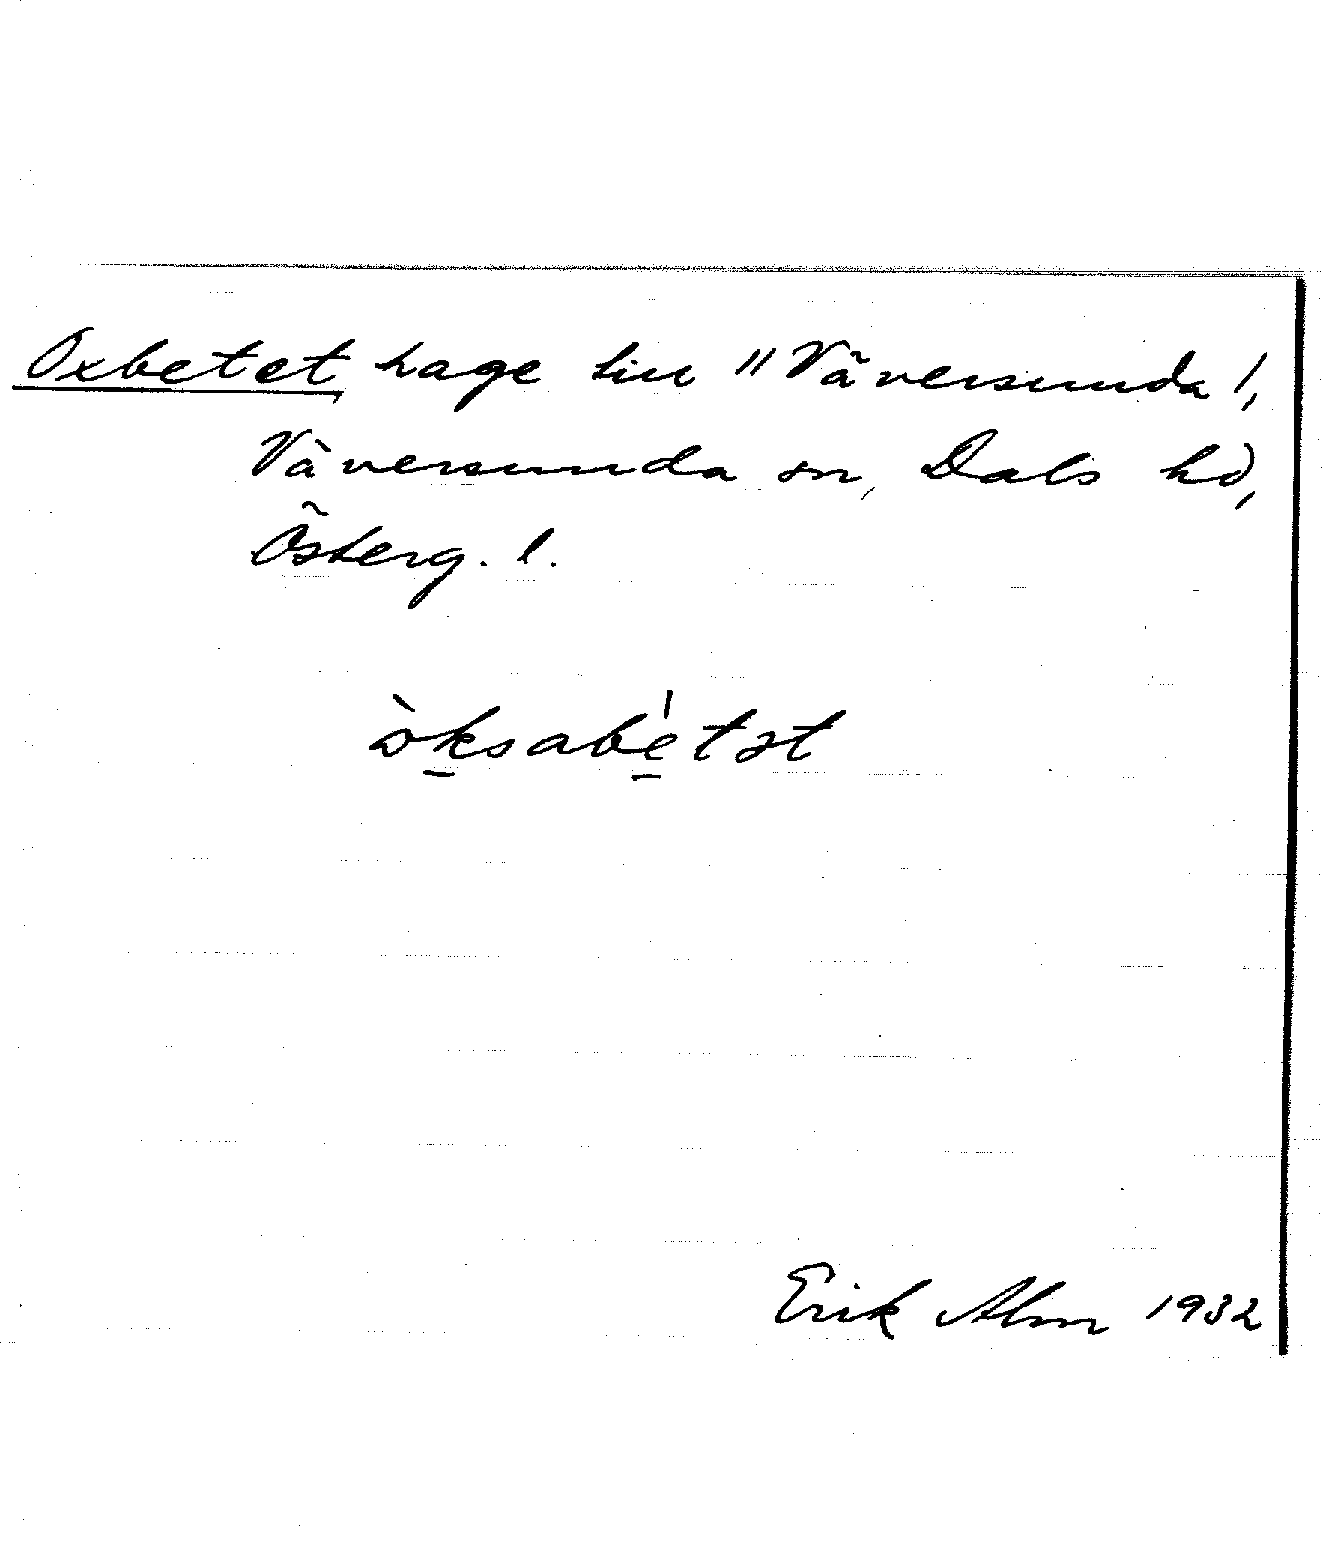 Oxbetet hage till "Väversunda 1,
Väversunda sn, Dals hd,
Österg. l.
òksabètət
Erik Alm 1932